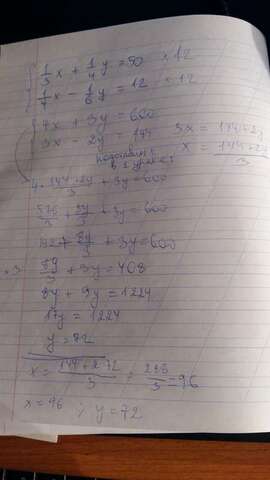 1/3 x + 1/4 y = 50 ×12
1/4 x - 1/6 y = 12 ×12
4x + 3y = 600
3x - 2y = 144
3x = 144+2y
x = 144+2y/3
подставим
в 1 уравн
4 · 144+2y/3 + 3y = 600
576/3 + 8y/3 + 3y = 600
192 + 8y/3 + 3y = 600
·3 8y/3 + 3y = 408
8y + 9y = 1224
17y = 1224
y = 72
x = 144+2·72/3 = 288/3 = 96
x = 96 ; y = 72